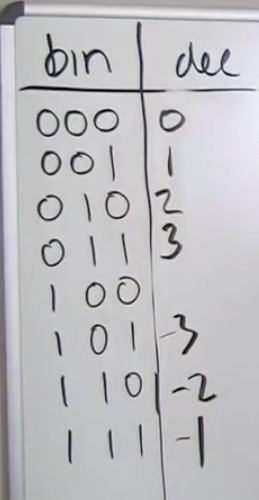 bin dec
000 0
001 1
010 2
011 3
100
101 -3
110 -2
111 -1